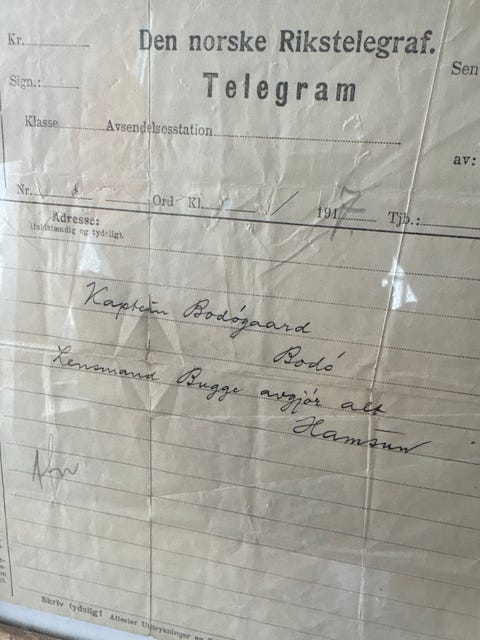 Kr.
Den norske Rikstelegraf.
Sign.:
Telegram
Sen
Klasse Avsendelsesstation
av:
Nr. Ord Kl. 1917 Tjb.:
Adresse:
(fuldstændig og tydelig).
Kaptein Bodógaard
Bodó
Lensmand Bugge avgjór alt
Hamsun
Skriv tydelig! Attester Utstrykninger